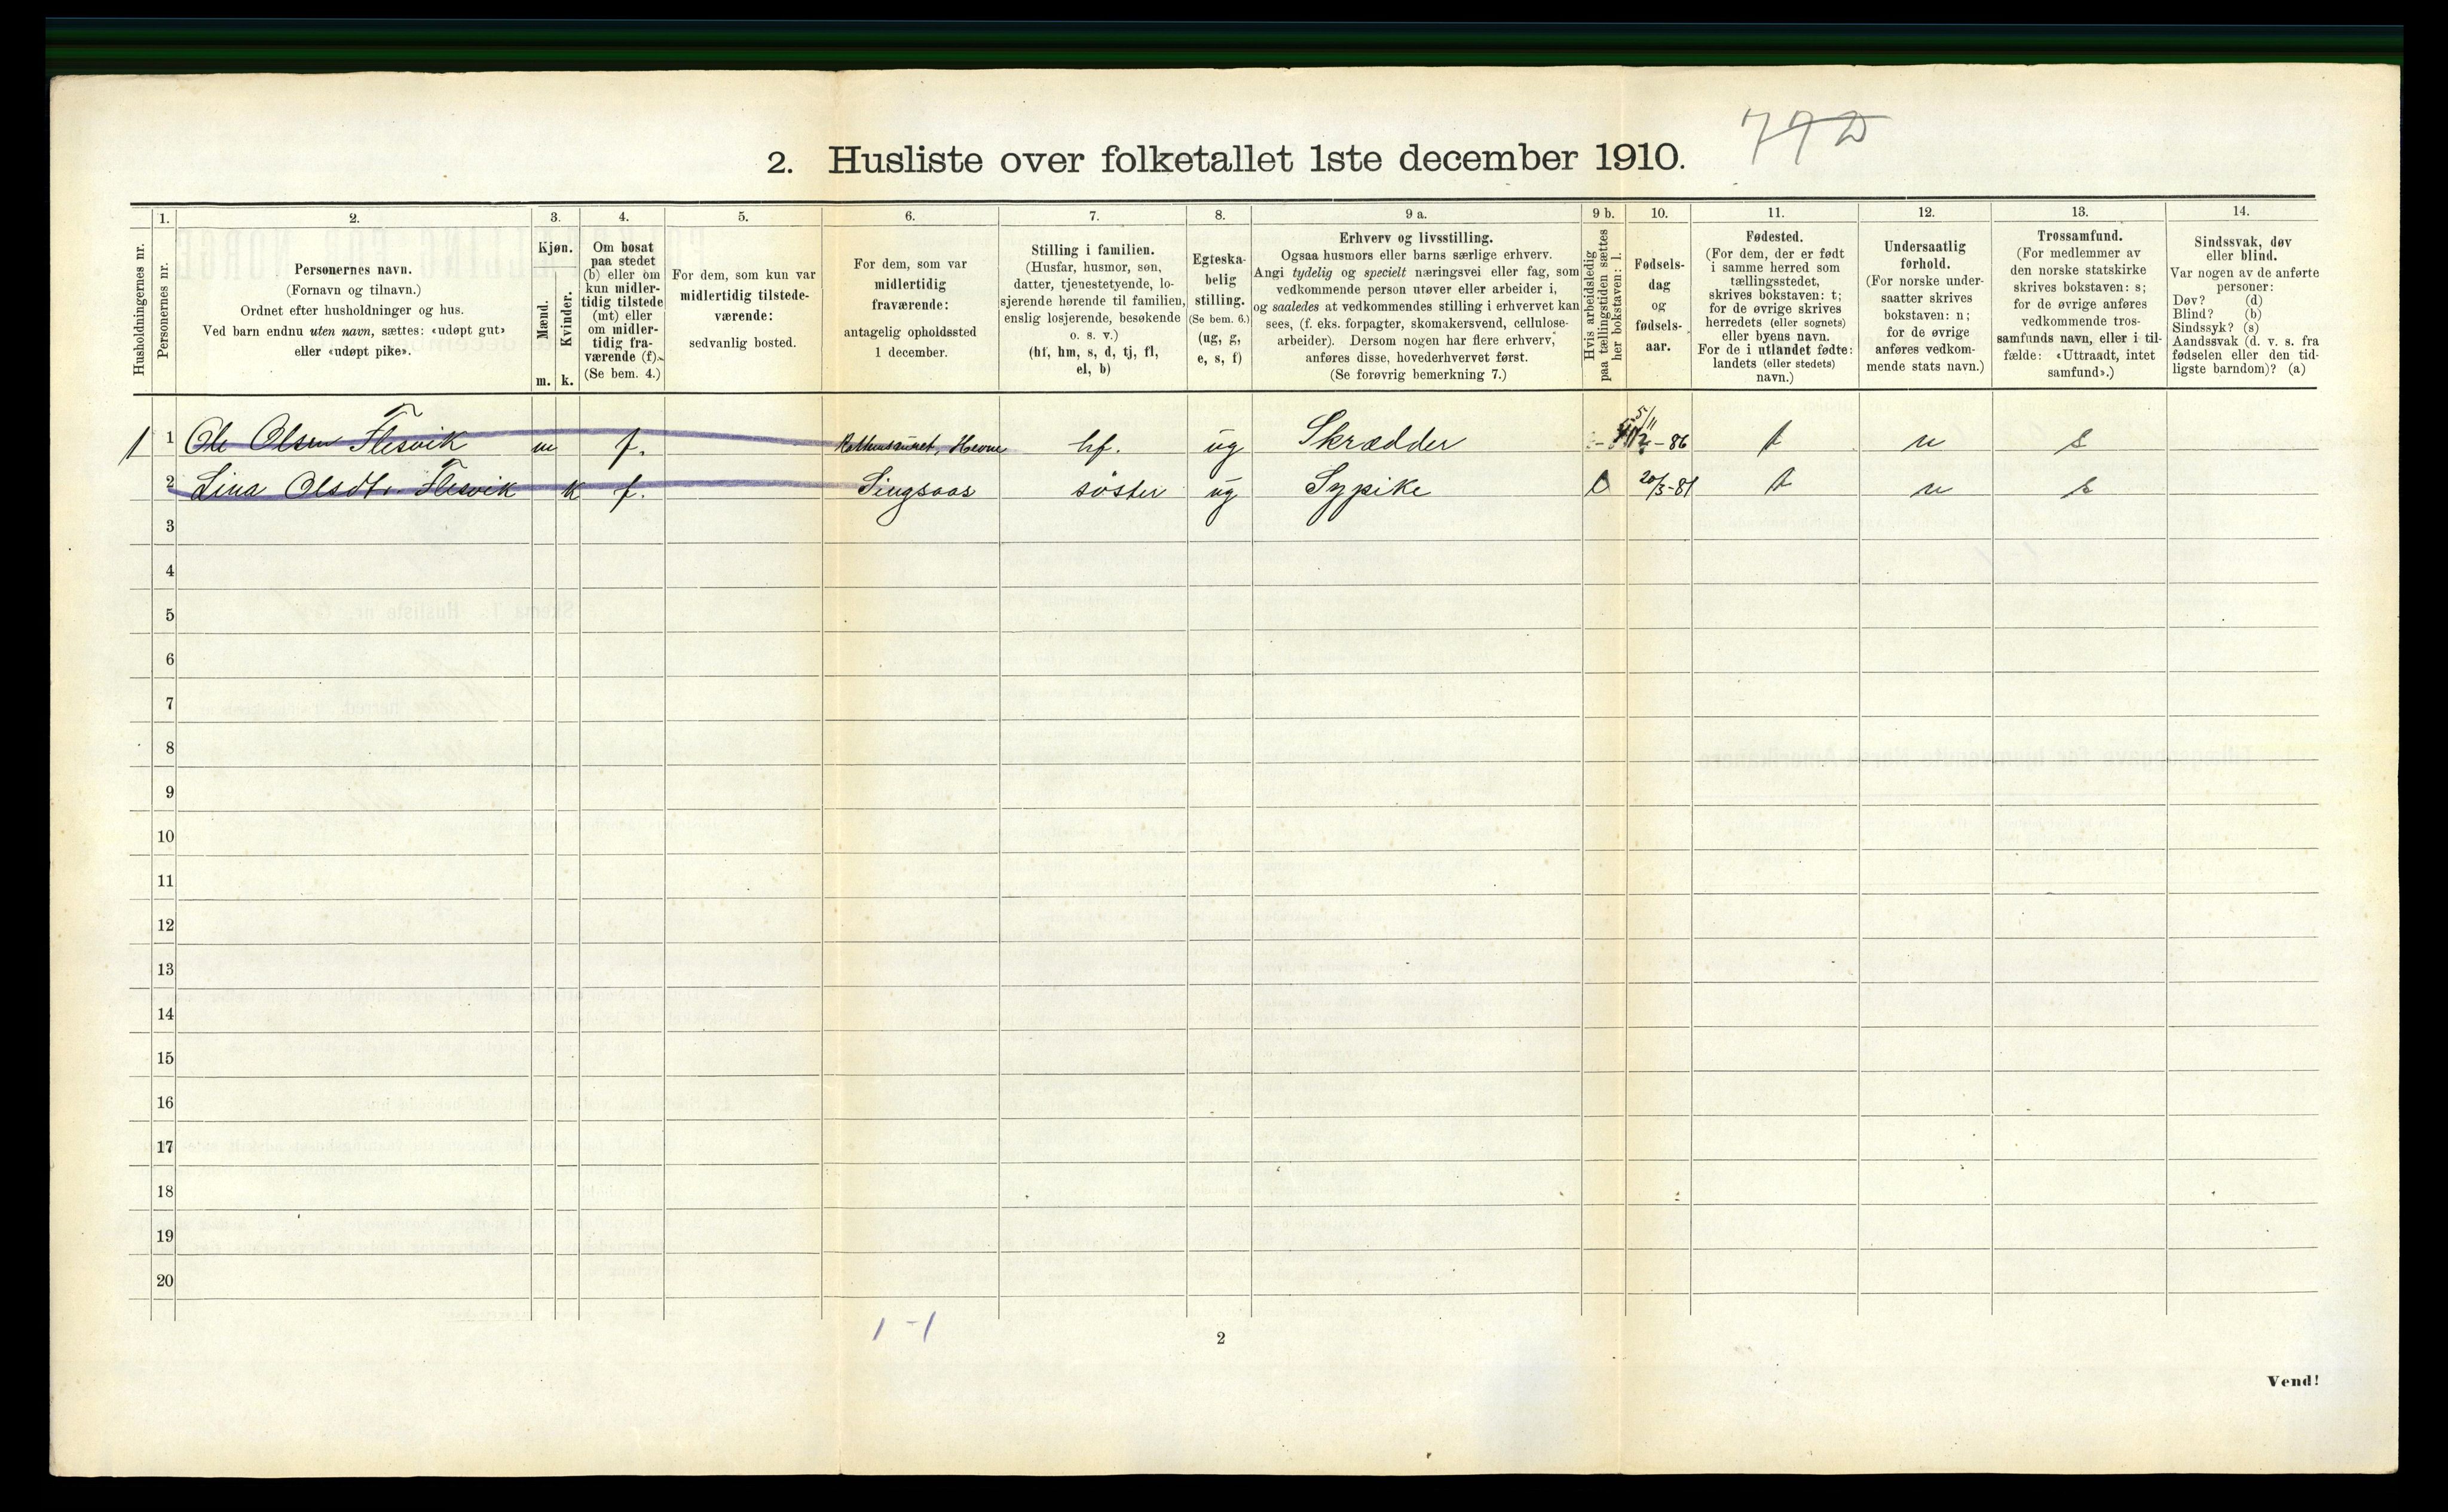 2. Husliste over folketallet 1ste december 1910.
Husholdningernes nr.
1.
Personernes nr.
2.
Personernes navn.
(Fornavn og tilnavn.)
Ordnet efter husholdninger og hus.
Ved barn endnu uten navn, sættes: «udøpt gut»
eller «udøpt pike».
3.
Kjøn.
Mænd.
m.
Kvinder.
k.
4.
Om bosat
paa stedet
(b) eller om
kun midler-
tidig tilstede
(mt) eller
om midler-
tidig fra-
værende (f).
(Se bem. 4.)
5.
For dem, som kun var
midlertidig tilstede-
værende:
sedvanlig bosted.
6.
For dem, som var
midlertidig
fraværende:
antagelig opholdssted
1 december.
7.
Stilling i familien.
(Husfar, husmor, søn,
datter, tjenestetyende, lo-
sjerende hørende til familien,
enslig losjerende, besøkende
o. s. v.)
(hf, hm, s, d, tj, fl,
el, b)
8.
Egteska-
belig
stilling.
(Se bem. 6.)
(ug, g,
e, s, f)
9 a.
Erhverv og livsstilling.
Ogsaa husmors eller barns særlige erhverv.
Angi tydelig og specielt næringsvei eller fag, som
vedkommende person utøver eller arbeider i,
og saaledes at vedkommendes stilling i erhvervet kan
sees, (f. eks. forpagter, skomakersvend, cellulose-
arbeider). Dersom nogen har flere erhverv,
anføres disse, hovederhvervet først.
(Se forøvrig bemerkning 7.)
9 b.
Hvis arbeidsledig
paa tællingstiden sættes
her bokstaven: l.
10.
Fødsels-
dag
og
fødsels-
aar.
11.
Fødested.
(For dem, der er født
i samme herred som
tællingsstedet,
skrives bokstaven: t;
for de øvrige skrives
herredets (eller sognets)
eller byens navn.
For de i utlandet fødte:
landets (eller stedets)
navn.)
12.
Undersaatlig
forhold.
(For norske under-
saatter skrives
bokstaven: n;
for de øvrige
anføres vedkom-
mende stats navn.)
13.
Trossamfund.
(For medlemmer av
den norske statskirke
skrives bokstaven: s;
for de øvrige anføres
vedkommende tros-
samfunds navn, eller i til-
fælde: «Uttraadt, intet
samfund».)
14.
Sindssvak, døv
eller blind.
Var nogen av de anførte
personer:
Døv? (d)
Blind? (b)
Sindssyk? (s)
Aandssvak (d. v. s. fra
fødselen eller den tid-
ligste barndom)? (a)
1 1 Ole Olsen Flesvik m f. Hevne hf. ug Skrædder 5/11 - 86 t n s
2 Lina Olsdt. Flesvik k f. Singsaas søster ug Sypike 20/3-81 t n s
3
4
5
6
7
8
9
10
11
12
13
14
15
16
17
18
19
20
1 - 1
2
Vend!